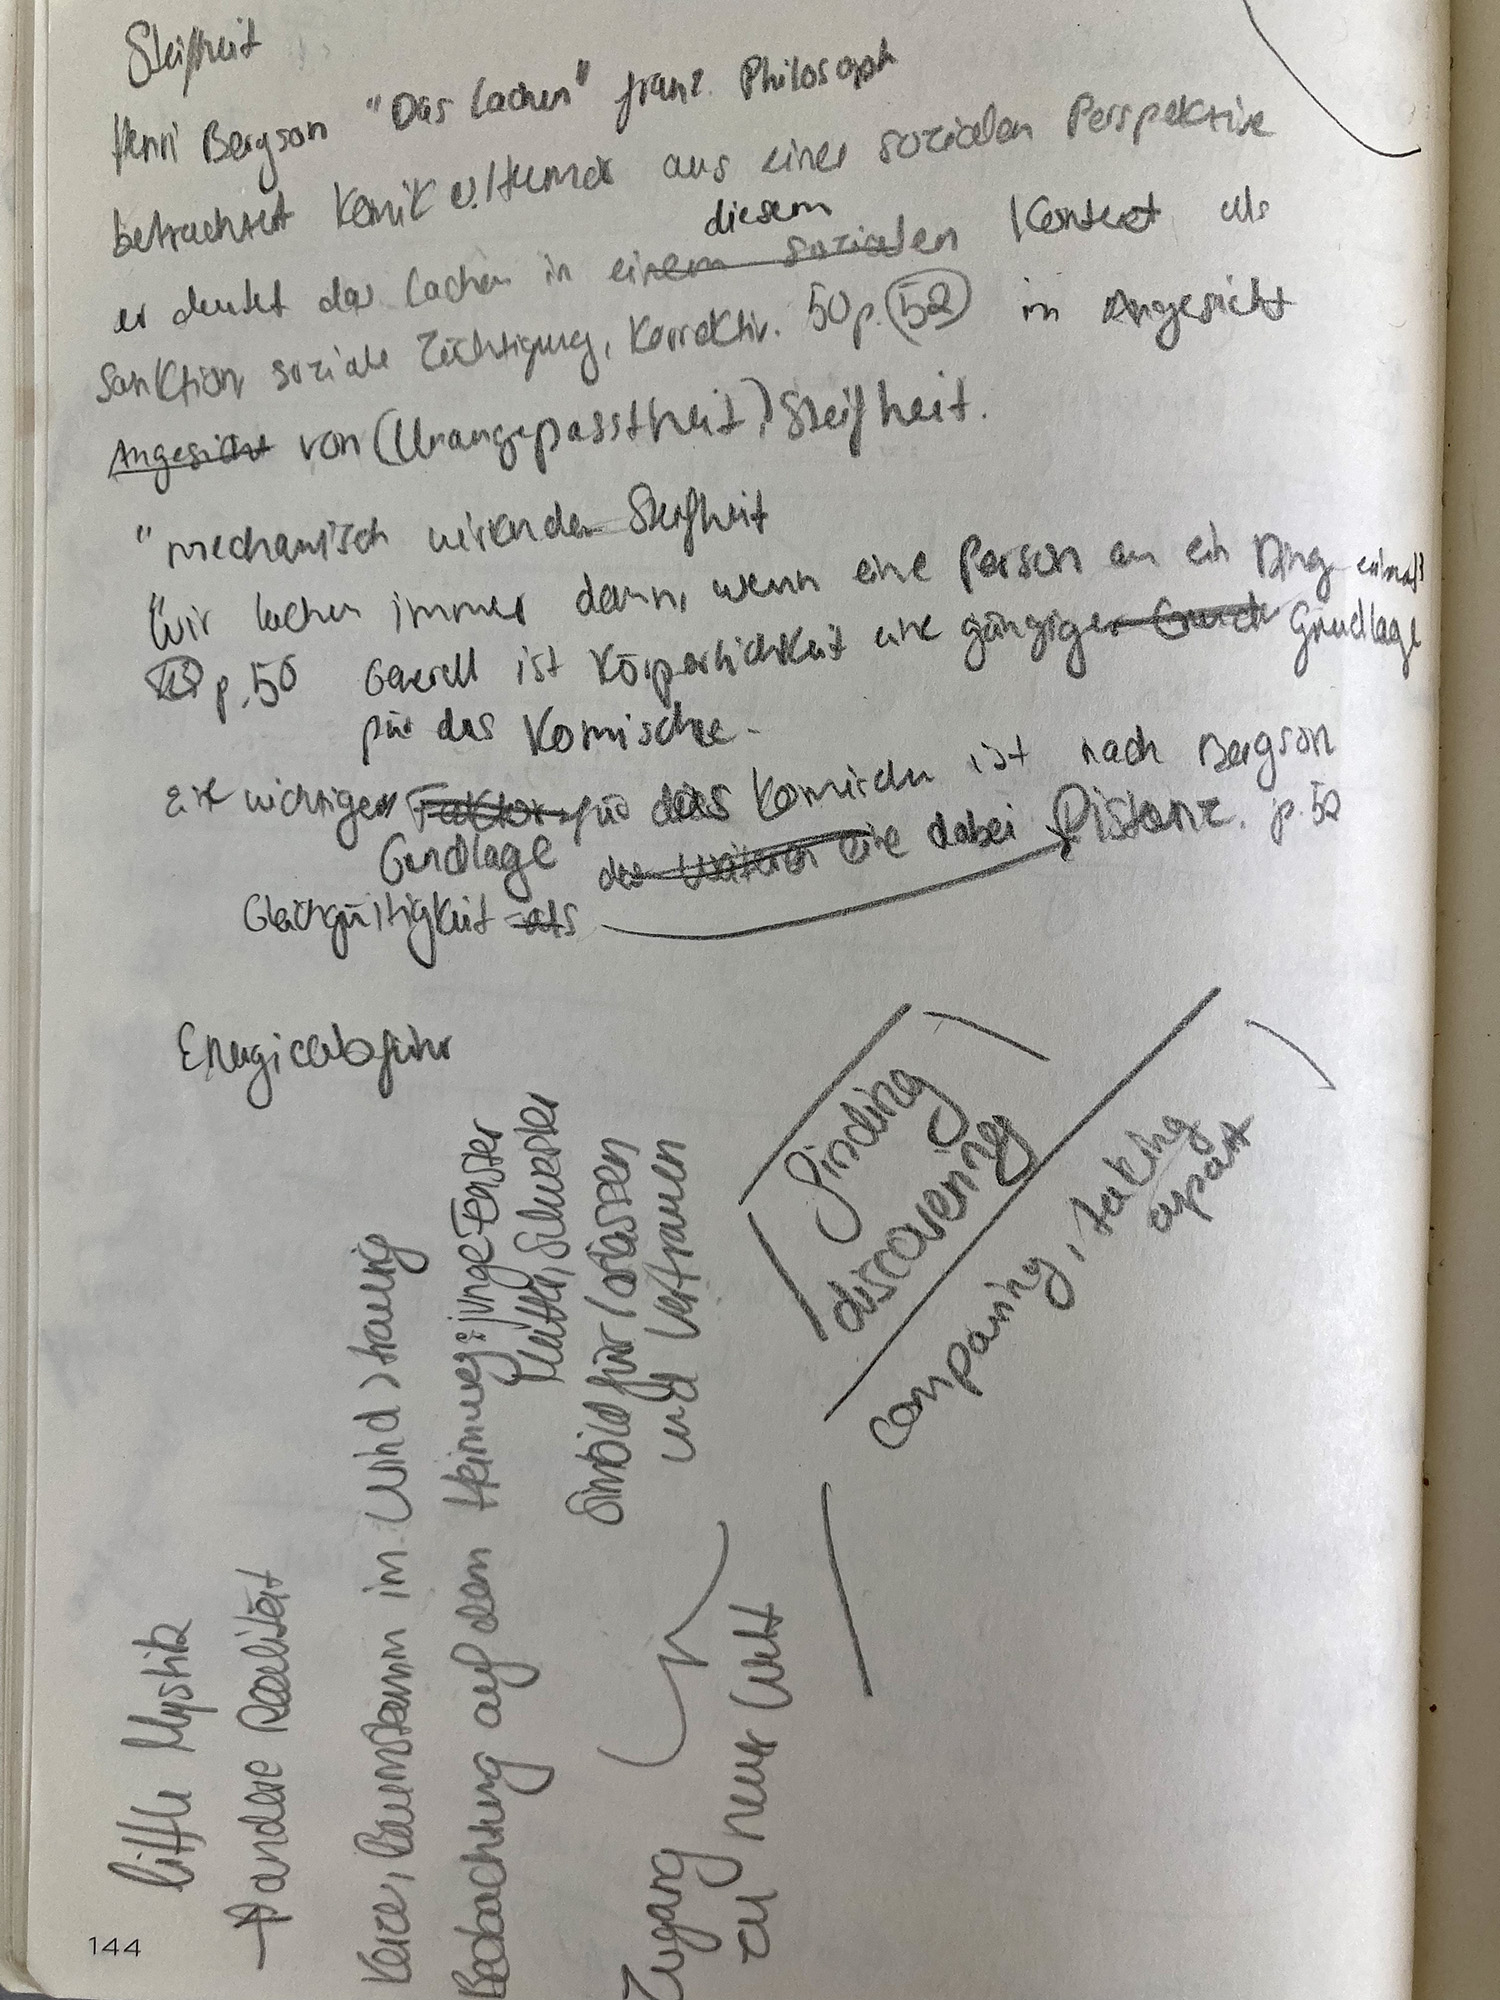 Steifheit
Henri Bergson "Das Lachen" franz. Philosoph
betrachtet Komik u. Humor aus einer sozialen Perspektive
diesem
er deutet das Lachen in einem sozialen Kontext als
Sanktion soziale Züchtigung, Korrektiv. 50 p. 52 im Angesicht
Angesicht von (Unangepasstheit,) Steifheit.
"mechanisch wirkender Steifheit
"Wir lachen immer dann, wenn eine Person an ein Ding
p. 50 Generell ist Körperlichkeit eine gängige Grundlage
für das Komische.
Eine wichtige Faktor für das Komischen ist nach Bergson
Gundlage des Weiteren eine dabei Distanz. p. 52
Gleichgültigkeit als
Energieabfuhr
finding
discovering
comparing, taking
apart
little Mystik
→ andere Realität
Kerze, Baumstamm im Wind) traurig
Beobachtung auf dem Heimweg: junge Fenster
Mutter, Schwester
Sinbild für loslassen
und Vertrauen
Zugang
zu neuer Welt
144